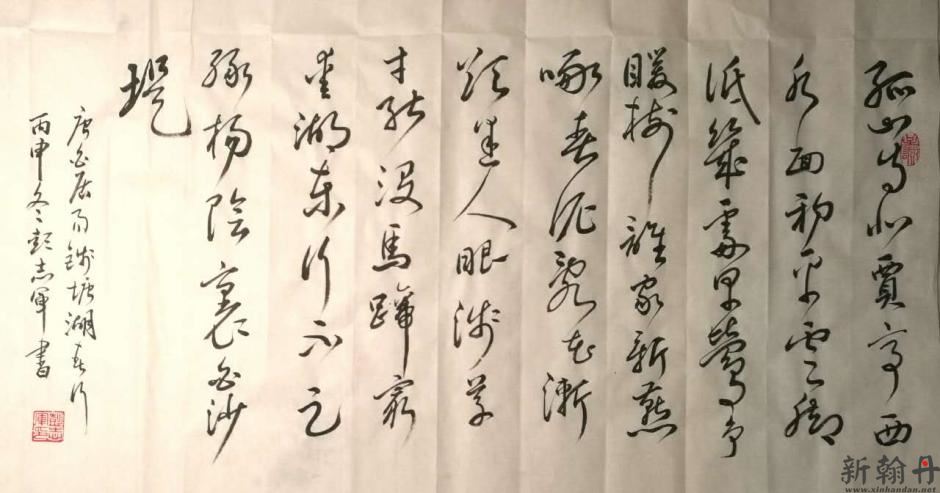 孤山寺北賈亭西
水面初平雲腳
低幾處早鶯爭
暖樹誰家新燕
啄春泥亂花漸
欲迷人眼淺草
才能沒馬蹄最
愛湖東行不足
綠楊陰裏白沙
堤
唐白居易錢塘湖春行
丙申冬彭志軍書
彭志軍印
新翰丹
www.xinhandan.net